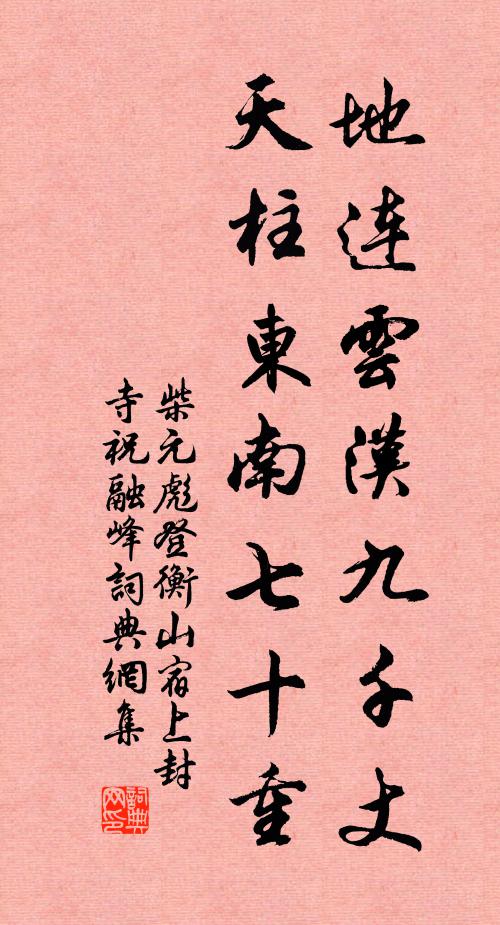 地連雲漢九千丈
天柱東南七十重
柴元彪登衡山宿上封
寺祝融峰詞典網集
詞典
网印